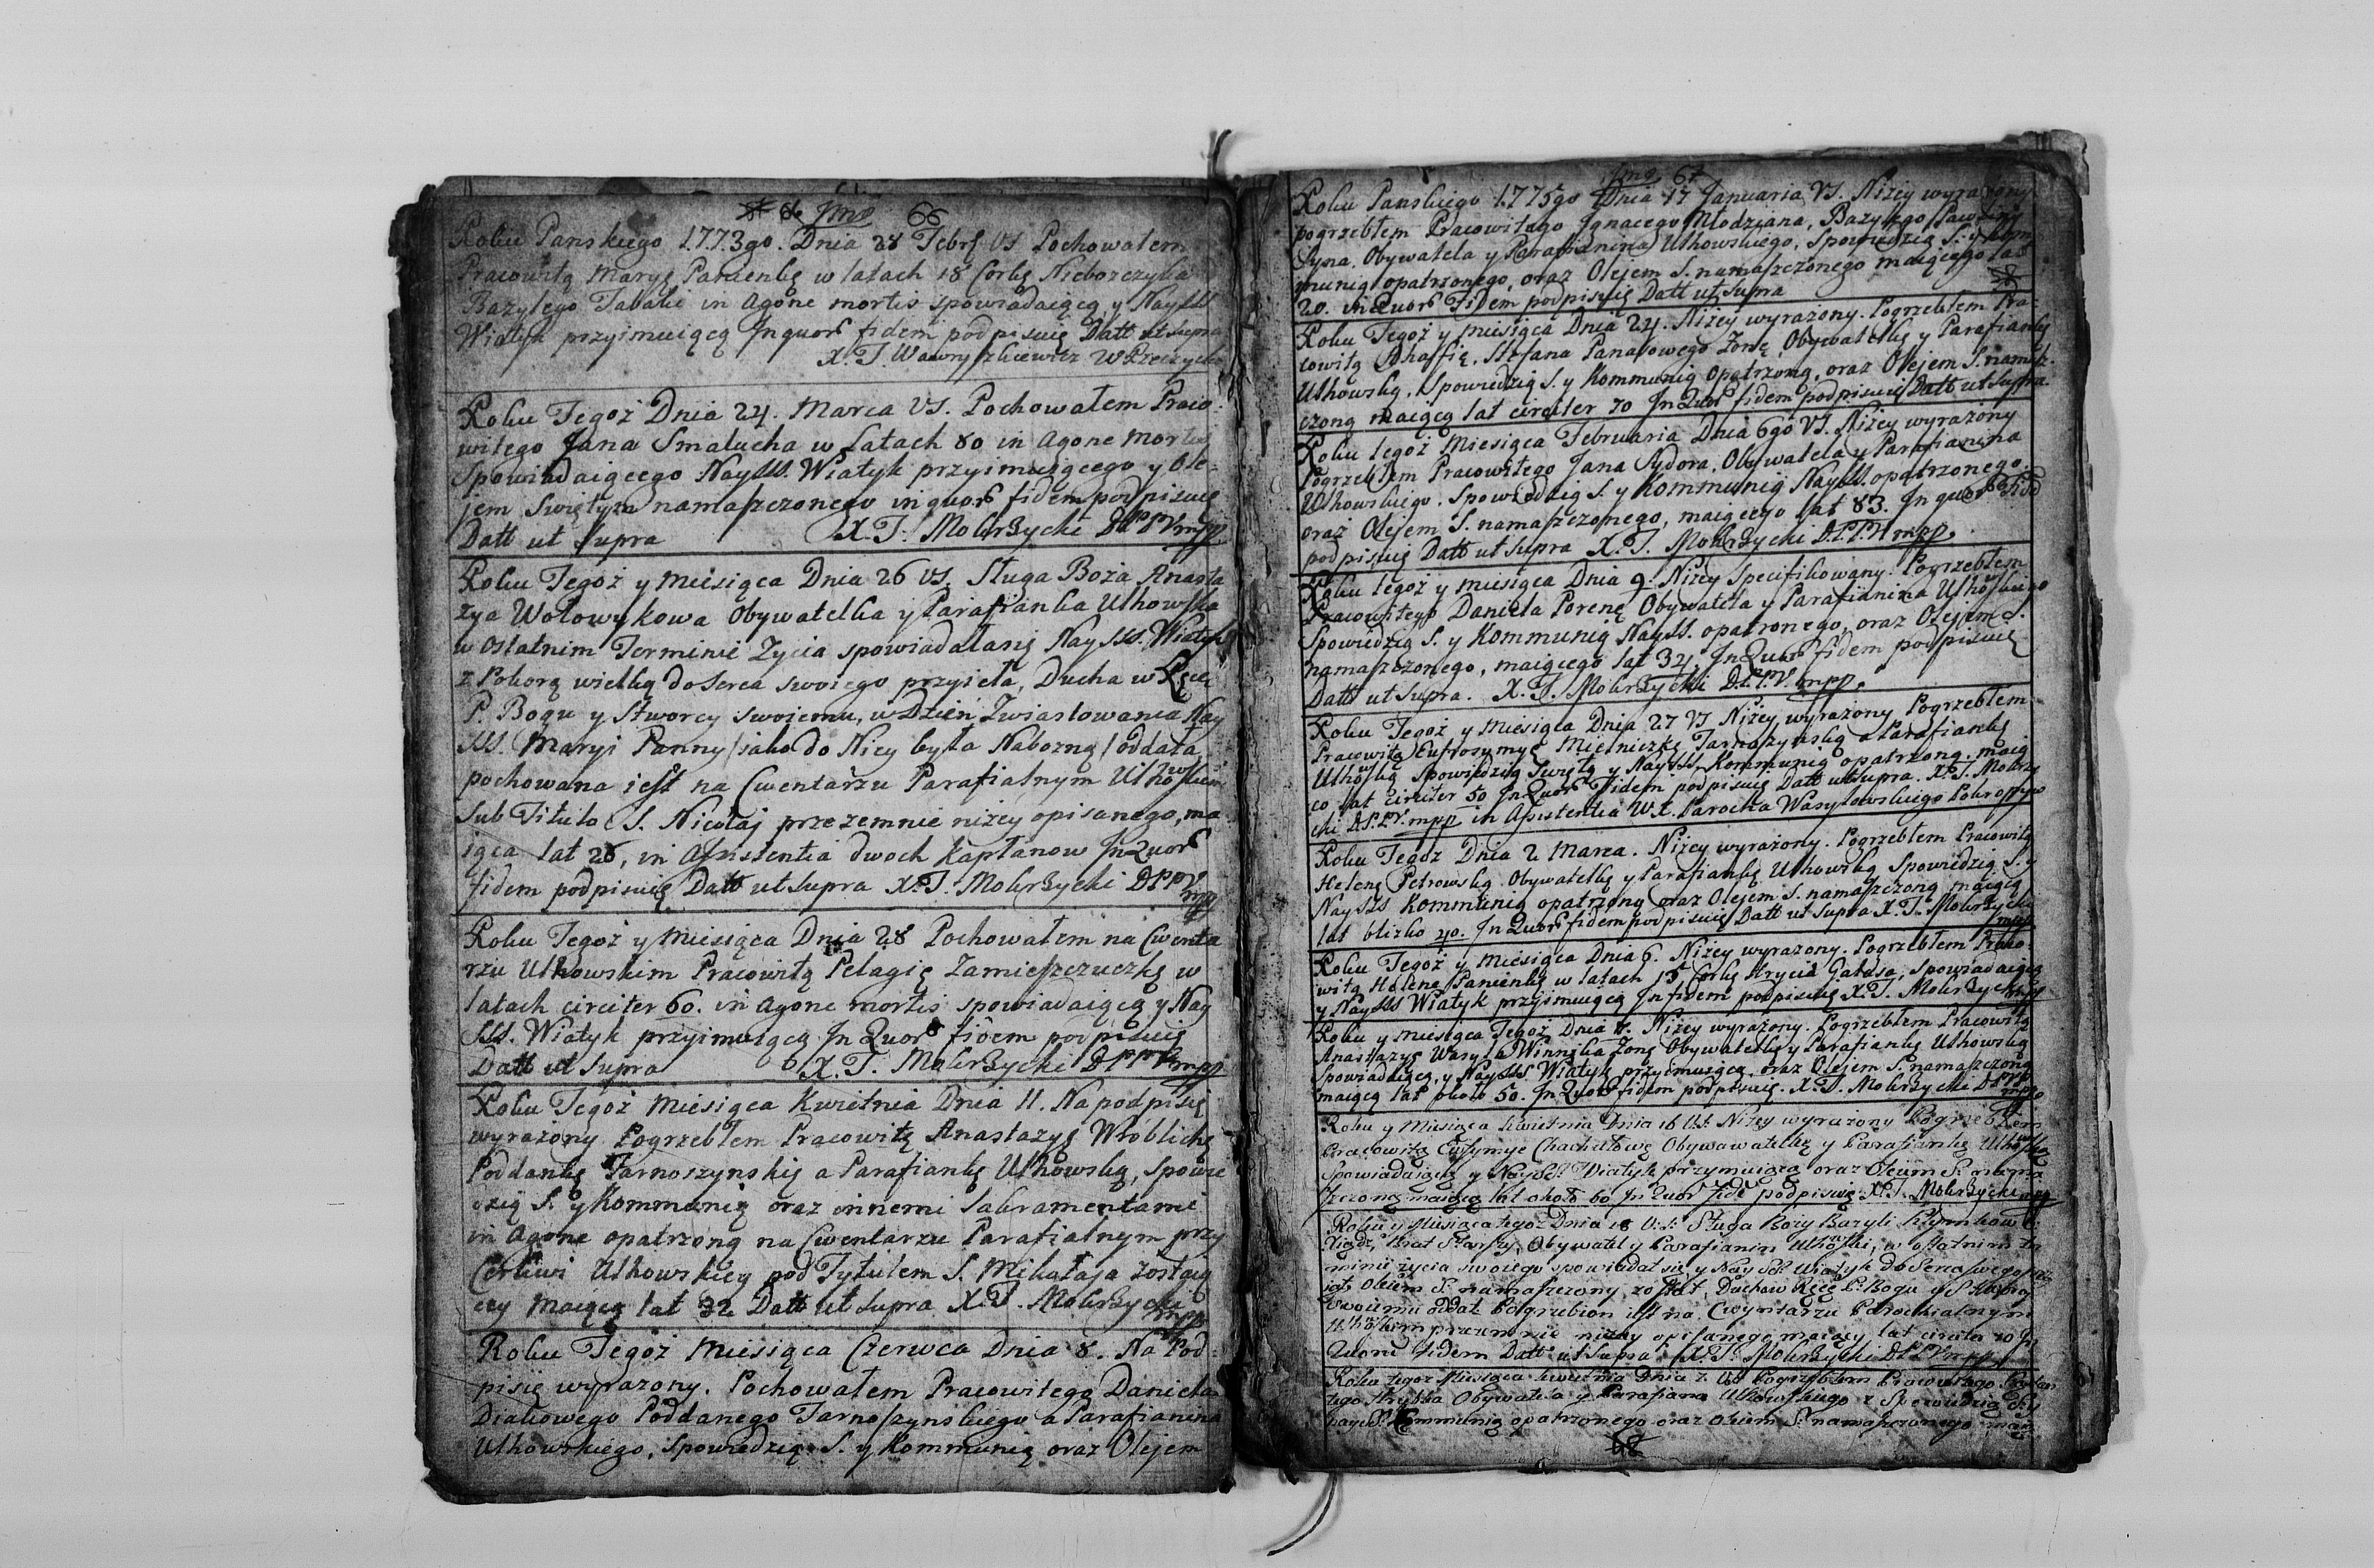 66
Roku Panskiego 1773go. Dnia 28 Febr VS Pochowałem
Pracowitą Maryę Panienkę w latach 18 Corkę Nieboszczyka
Bazylego in Agone mortis spowiadaiącą y NaySSS
Wiatyk przyimuiącą Inquor fidem podpisuię Datt ut supra
X. T. Wawryszkiewicz
Roku Tegoż Dnia 24. Marca VS. Pochowałem Praco-
witego Jana Smalucha w latach 80 in Agone Mortis
Spowiadaiącego NaySSS. Wiatyk przyimuiącego y Ole-
jem Swiętym namaszczonego in quor fidem podpisuię
Datt ut supra X. T. Mokrzycki DPPV mpp
Roku Tegoż y Miesiąca Dnia 26 VS. Sługa Boża Anasta
zya Wołowykowa Obywatelka y Parafianka Uhnowska
w Ostatnim Terminie Zycia spowiadałasię NaySSS. Wiatyk
z Pokorą wielką do Serca swoiego przyieła, Ducha w Ręce
P. Bogu y Stworcy swoiemu, w Dzień Zwiastowania Nay
SSS. Maryi Panny /iako do Niey była Nabozną/ oddała
pochowana iest na Cwentarzu Parafialnym
Sub Titulo S. Nicolaj przezemnie niżey opisanego, ma
iąca lat 26, in Assistentia dwoch Kapłanow InQuor
fidem podpisuię Datt ut supra X. T. Mokrzycki DPPV
mpp
Roku Tegoż y Miesiąca Dnia 28 Pochowałem na Cwenta
rzu Uhnowskim Pracowitą Pelagię Zamieszczuczkę w
latach circiter 60. in Agone mortis spowiadaiącą y Nay
SSS. Wiatyk przyimuiącą In Quor fidem podpisuię
Datt ut supra X. T. Mokrzycki DPPV mpp
Roku Tegoż Miesiąca Kwietnia Dnia 11. Na podpisie
wyrażony Pogrzebłem Pracowitę Anastazyę Wróblichę
Poddankę Tarnoszynskię a Parafiankę Uhnowską, Spowie
dzią S. y Kommunią oraz innemi Sakramentami
in Agone opatrzoną na Cwentarzu Parafialnym przy
Cerkwi Uhnowskiey pod Tytułem S. Mikołaja zostaią
cey Maiącą lat 32 Datt ut supra X. T. Mokrzycki
mpp
Roku Tegoż Miesiąca Czerwca Dnia 8. Na Pod-
pisie wyrażony. Pochowałem Pracowitego Daniela
Diakowego Poddanego Tarnoszynskiego a Parafianina
Uhnowskiego, Spowiedzią S. y Kommunią oraz Olejem
67
Roku Panskiego 1775go Dnia 17 Januaria VS. Niżey wyrażony
pogrzebłem Pracowitego Ignacego Młodziana, Bazylego
Syna. Obywatela y Parafianina Uhnowskiego, Spowiedzią S. y Kom
munią opatrzonego, oraz Olejem S. namaszczonego maiącego lat
20. inQuor Fidem podpisuię Datt ut supra
Roku Tegoż y Miesiąca Dnia 24. Niżey wyrażony. Pogrzebłem Pra-
cowitą Stefana Panasowego Zonę, Obywatelkę y Parafiankę
Uhnowską, Spowiedzią S. y Kommunią Opatrzoną, oraz Olejem S. namasz-
czoną maiącą lat circiter 70 InQuor fidem podpisuię Datt ut supra
Roku tegoż Miesiąca Februaria Dnia 6go VS. Niżey wyrażony
Pogrzebłem Pracowitego Jana Sydora, Obywatela y Parafianina
Uhnowskiego. Spowiedzią S. y Kommunią NaySS. opatrzonego.
oraz Olejem S. namaszczonego, maiącego lat 83. In quor Fid
podpisuię Datt ut supra X. T. Mokrzycki D.P.P.V mpp.
Roku tegoż y miesiąca Dnia 9. Niżey Specifikowany. Pogrzebłem
Pracowitego Daniela Porenę Obywatela y Parafianina Uhnowskiego
Spowiedzią S. y Kommunią NaySS. opatronego, oraz Olejem S.
namaszczonego, maiącego lat 34, InQuor fidem podpisuię
Datt ut supra. X. T. Mokrzycki D.P.P.V. mpp.
Roku Tegoż y Miesiąca Dnia 27 VS Niżey wyrażony Pogrzebłem
Pracowitą Eufrosymyę Mielniczkę Tarnoszynską a Parafiankę
Uhnowską Spowiedzią Swiętą y NaySSS. Kommunią opatrzoną, maią
co lat circiter 50 InQuor Fidem podpisuię Datt ut supra. X. T. Mokrzy
cki D.P.P.V. mpp in Assistentia W.X. Parocha Wasylowskiego
Roku Tegoż Dnia 2 Marca. Niżey wyrażony. Pogrzebłem Pracowitą
Helenę Petrowską Obywatelkę y Parafiankę Uhnowską Spowiedzią S. y
NaySSS Kommunią opatrzoną oraz Olejem S. namaszczoną maiącą
lat blizko 40. InQuor fidem podpisuię Datt ut supra X. T. Mokrzycki
mpp
Roku Tegoż y Miesiąca Dnia 6. Niżey wyrażony. Pogrzebłem Praco-
witą Helenę Panienkę w latach 15 Corkę Hrycia Gałasa, Spowiadaiącą
y NaySSS Wiatyk przyimuiącą In fidem podpisuię X. T. Mokrzycki mpp
Roku y miesiąca Tegoż Dnia 8. Niżey wyrażony. Pogrzebłem Pracowitą
Anastazyę Wasyla Winnika Zonę Obywatelkę y Parafiankę Uhnowską
Spowiadaiącą, y NaySSS Wiatyk przyimuiącą, oraz Olejem S. namaszczoną
maiącą lat około 50. InQuor fidem podpisuię. X. T. Mokrzycki DPPV
mpp
Roku y Miesiąca kwietnia Dnia 16 VS. Niżey wyrażony Pogrzebłem
Pracowitą Eufymyę Obywawatelkę y Parafiankę Uhnowską
Spowiadaiącą y NaySS. Wiatyk przymuiącą oraz Oleum S. namа
szczoną maiącą lat około 60 In Quor fide podpisuię X. T. Mokrzycki mpp
Roku y Miesiąca tegoż Dnia 18 V.S. Sługa Boży Bazyli
Brat Starszy, Obywatel y Parafianin Uhnowski, w ostatnim ter
minie życia swoiego spowiadał się y NaySS. Wiatyk do Serca swego
Oleiem S. namaszczony został, Ducha w Ręce P. Bogu y
swoiemu oddał Pogrzebion iest na Cwyntarzu Parochialnym
Uhnowskim przezemnie niżey opisanego maiący lat circiter 70 In
Quore fidem Datt ut supra X. T. Mokrzycki D.P.P.V mpp
Roku tegoż Miesiąca kwietnia Dnia VS Pogrzebłem Pracowitego
Obywatela y Parafiana Uhnowskiego z Spowiedzią S. y
NaySS. Kommunią opatrzonego oraz oleum S. namaszczonego